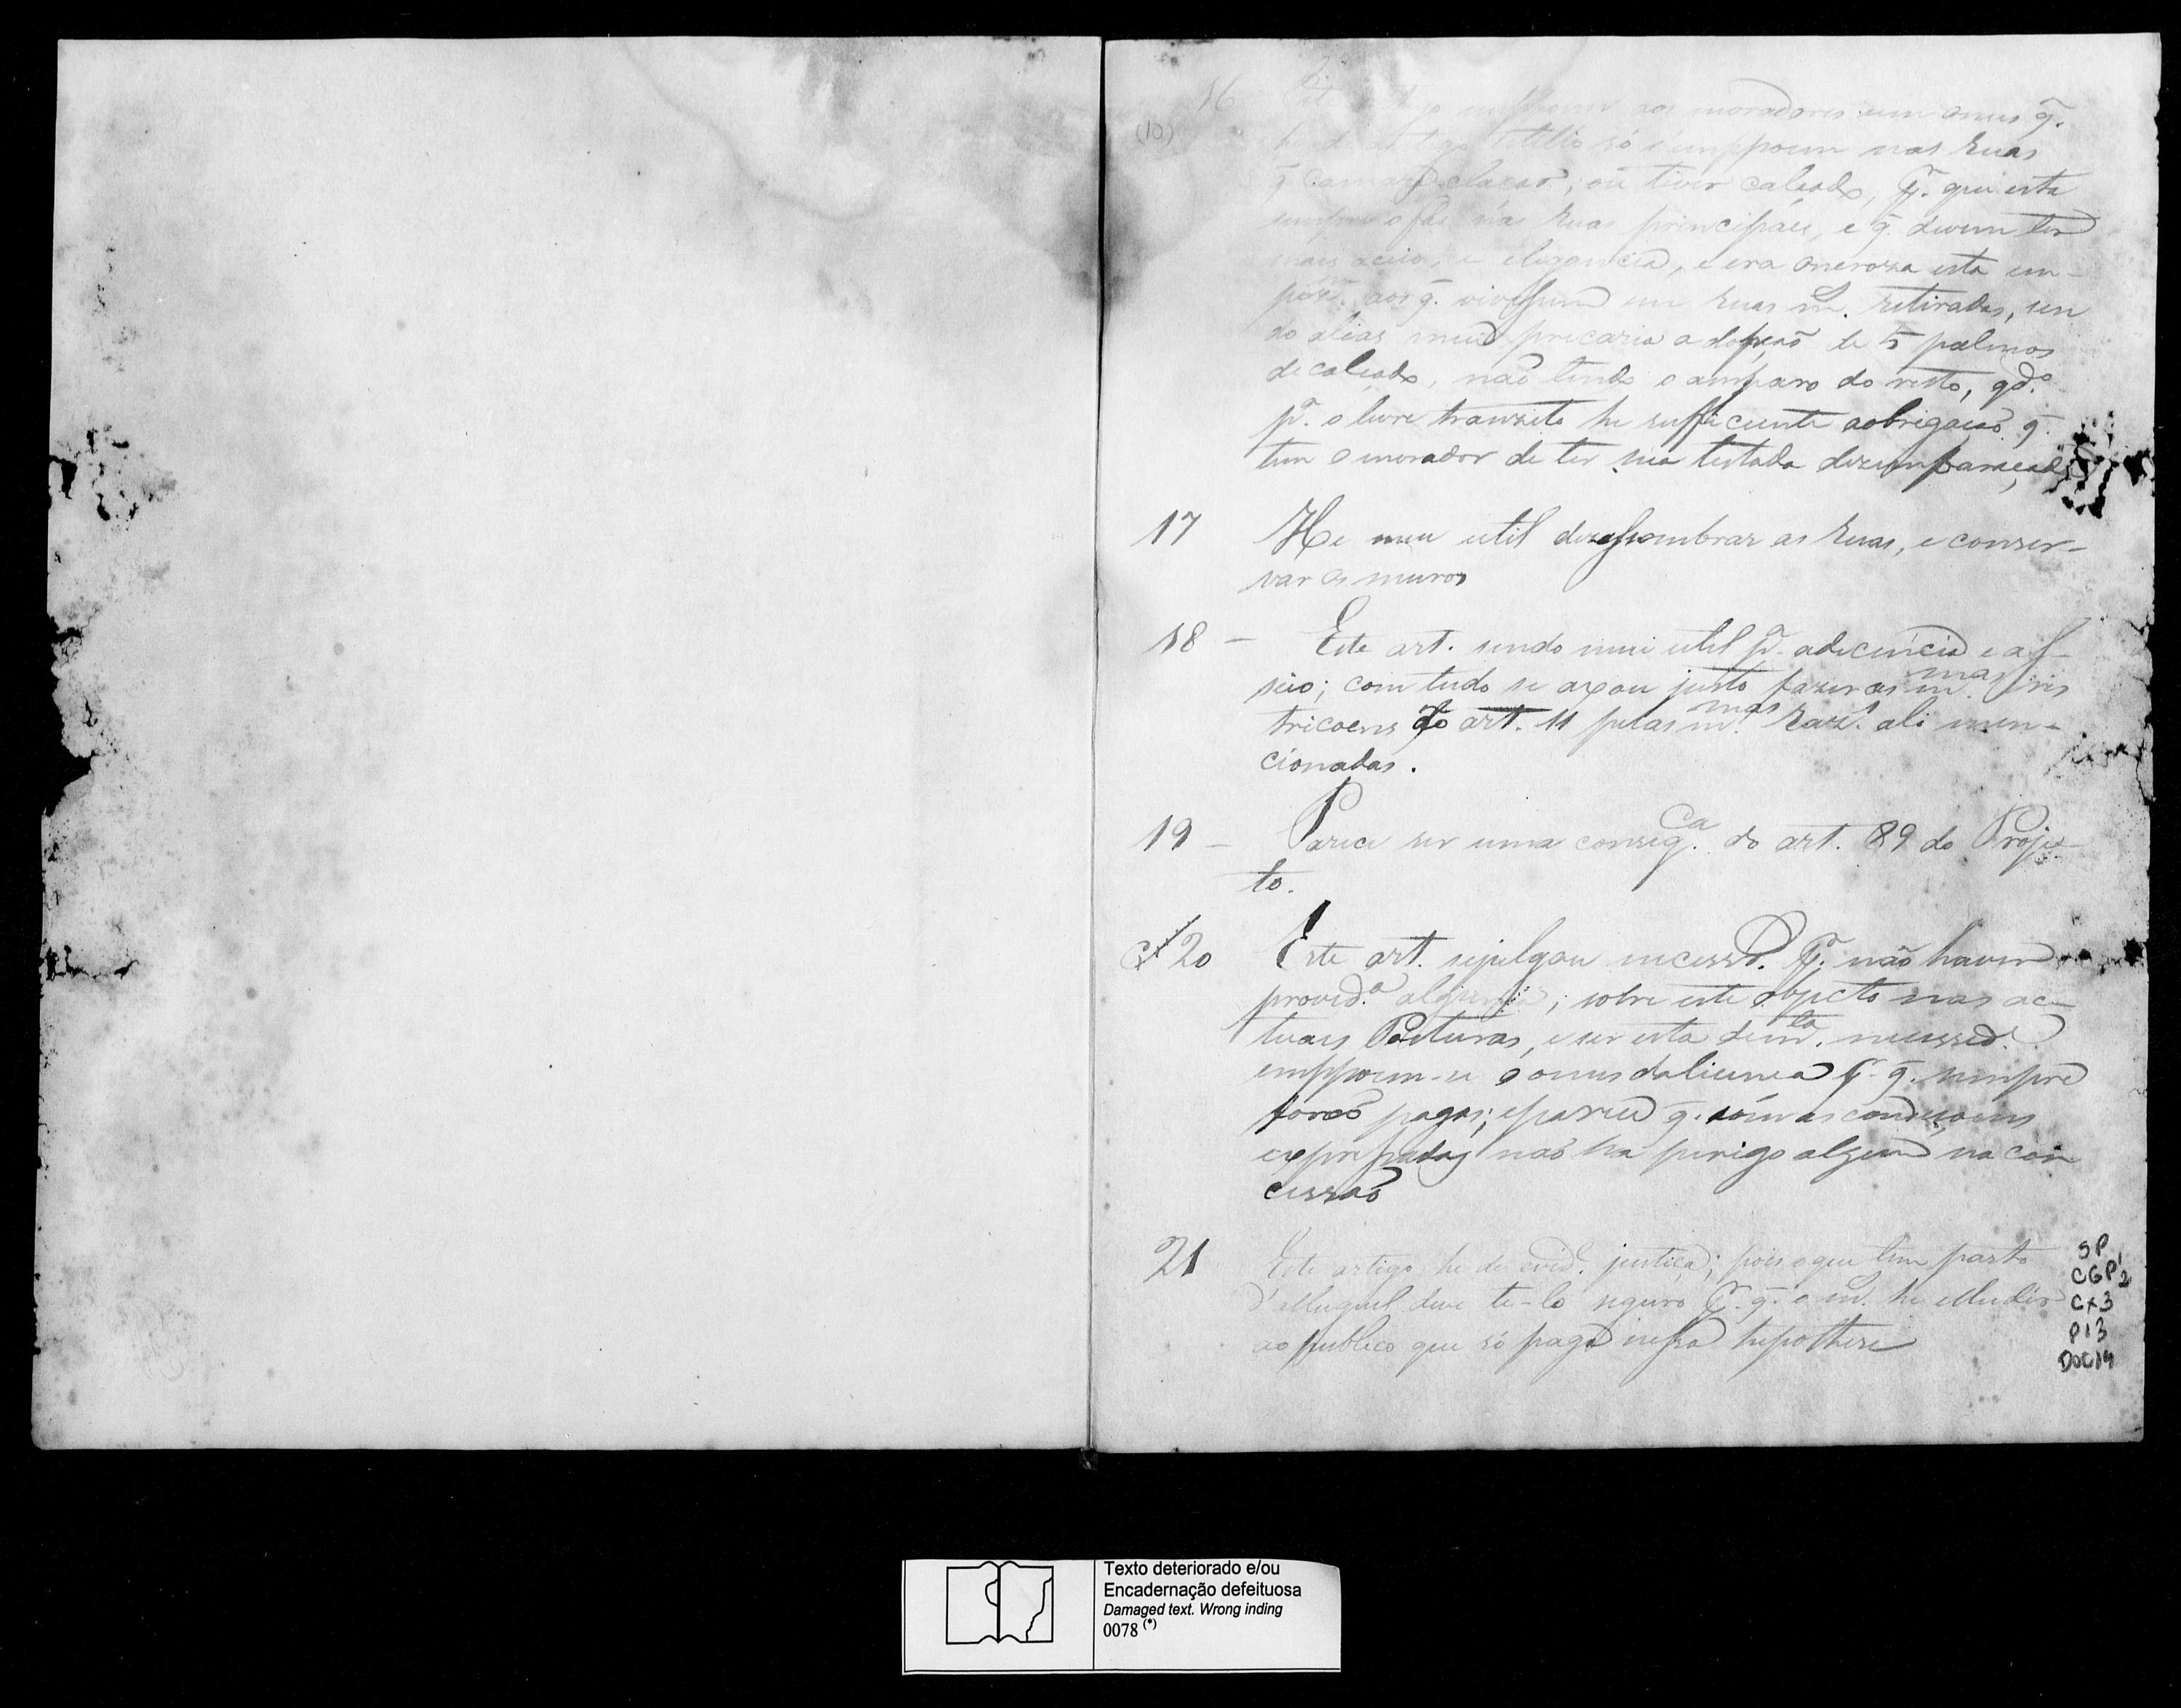 16 Este artigo emppoem aos moradores um onus q̃.
(10)
só s'emppoem nas Ruas
q̃ Camara, ou tiver calçado, pr. que esta
sempre o faz nas Ruas principaes, e q̃. devem ter
mais aceio, e elegancia, e era oneroza esta em-
pos. aos q̃. vivessem em Ruas m. retiradas, sen
do alias mui precaria a de 5 palmos
de calçado, naõ tendo o amparo do resto, qdo.
pa. o livre tranzito he sufficiente a obrigaçaõ q̃
tem o morador de ter sua testada dezempançada
17 He mui util dezassombrar as Ruas, e conser-
var os muros
18 - Este art. sendo mui util pa. a decencia e as-
seio; com tudo se axou justo fazer as mmas. res
tricoens do art. 11 pelas mmas. Raz. ali men-
cionadas.
19 - Parece ser uma conseqca. do art. 89 do Proje-
to.
20 Este art. se julgou necessro. Pr. não haver
provida. alguma; sobre este objecto nas ac-
tuais Posturas, e ser esta de mta. necessde.
emppoem-se o onus da licença Pr. q̃. sempre
foraõ pagas; e parece q̃. com as condiçoens
expressadas naõ ha perigo algum na con
cessaõ
21 Este artigo he de evid. justiça; pois o que tem pasto
d'alluguel deve te-lo seguro Pr. q̃. o m. he elludir
ao publico que só paga nessa hepothese
SP
CGP1
2
CX3
P13
DOC14
Texto deteriorado e/ou
Encadernação defeituosa
Damaged text. Wrong inding
0078 (*)